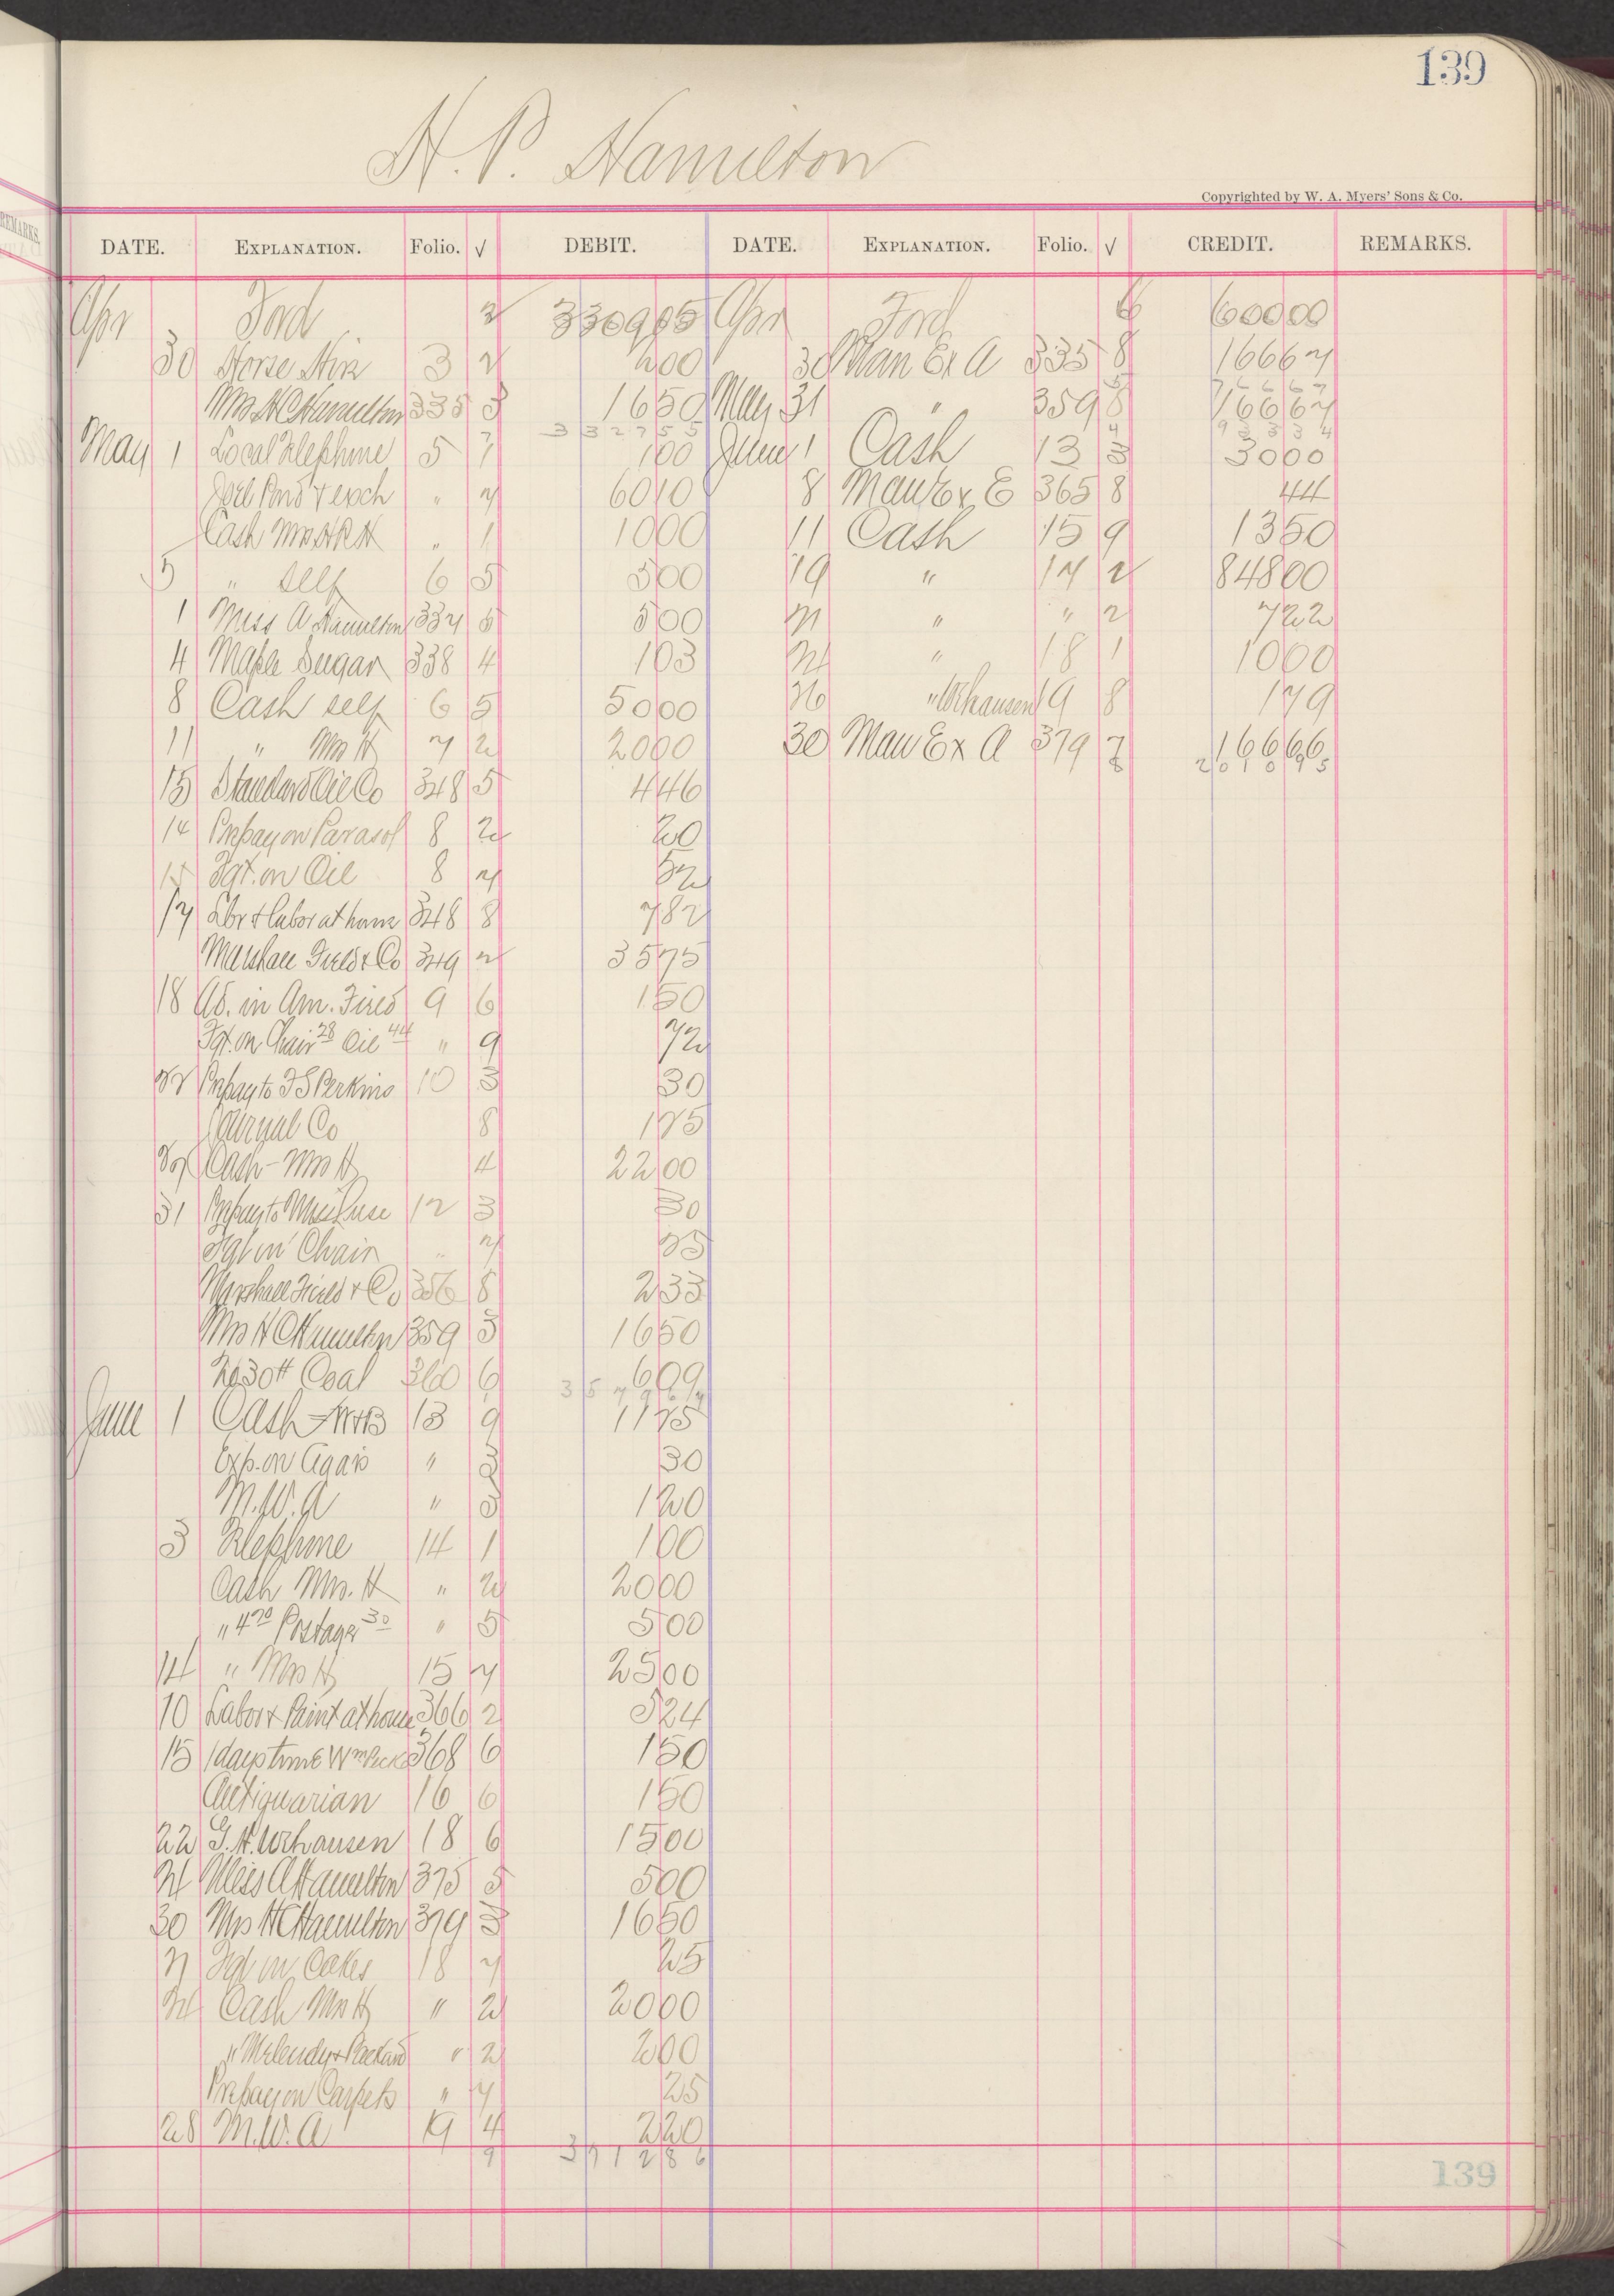 139
H. P. Hamilton
Copyrighted by W. A. Myers' Sons & Co.
DATE. EXPLANATION. Folio. √ DEBIT. DATE. EXPLANATION. Folio. √ CREDIT. REMARKS.
Apr Ford 2 330905 Apr Ford 6 60000
30 Horse Hire 3 2 200 30 Man Ex A 335 8 16667
Mrs H C Hamilton 335 3 1650 May 31 " 359 8 16667
332755 76667
May 1 Local Telephone 5 7 100 June 1 Cash 13 3 3000
93334
" 7 6010 8 Man Ex E 365 8 44
Cash Mrs H P H " 1 1000 11 Cash 15 9 1350
5 " self 6 5 500 19 " 17 2 84800
1 Miss A Hamilton 337 5 500 21 " " 2 722
4 Maple Sugar 338 4 103 24 " 18 1 1000
8 Cash self 6 5 5000 26 " Urhausen 19 8 179
11 " Mrs H 7 2 2000 30 Man Ex A 379 7 16666
15 Standard Oil Co 348 5 446 201095
14 Prepay on Parasol 8 2 20
15 Fgt. on Oil 8 7 52
17 Lbr & labor at home 348 8 782
Marshall Field & Co 349 2 3575
18 Ad. in Am. Fires 9 6 150
Fgt. on Chair 28 Oil 44 " 9 72
Prepay to F S Perkins 10 3 30
Co 8 175
27 Cash - Mrs H 4 2200
31 Prepay to 12 3 30
Fgt on Chair " 7 35
Marshall Field & Co 356 8 233
Mrs H C Hamilton 359 3 1650
2030# Coal 360 6 609
357967
June 1 Cash 13 9 1175
Exp. on Cigars " 3 30
M.W.A " 3 120
3 Telephone 14 1 100
Cash Mrs. H " 2 2000
" 4 70 Postage 30 " 5 500
14 " Mrs H 15 7 2500
10 Labor & Paint at house 366 2 524
15 1 days time Wm Peck 368 6 150
Antiquarian 16 6 150
22 G. H. Urhausen 18 6 1500
24 Miss A Hamilton 375 5 500
30 Mrs H C Hamilton 379 3 1650
21 Fgt on Cakes 18 7 25
24 Cash Mrs H " 2 2000
" Melendy & Packard " 2 200
Prepay on Carpets " 7 25
28 M.W.A 19 4 220
9 371286
139